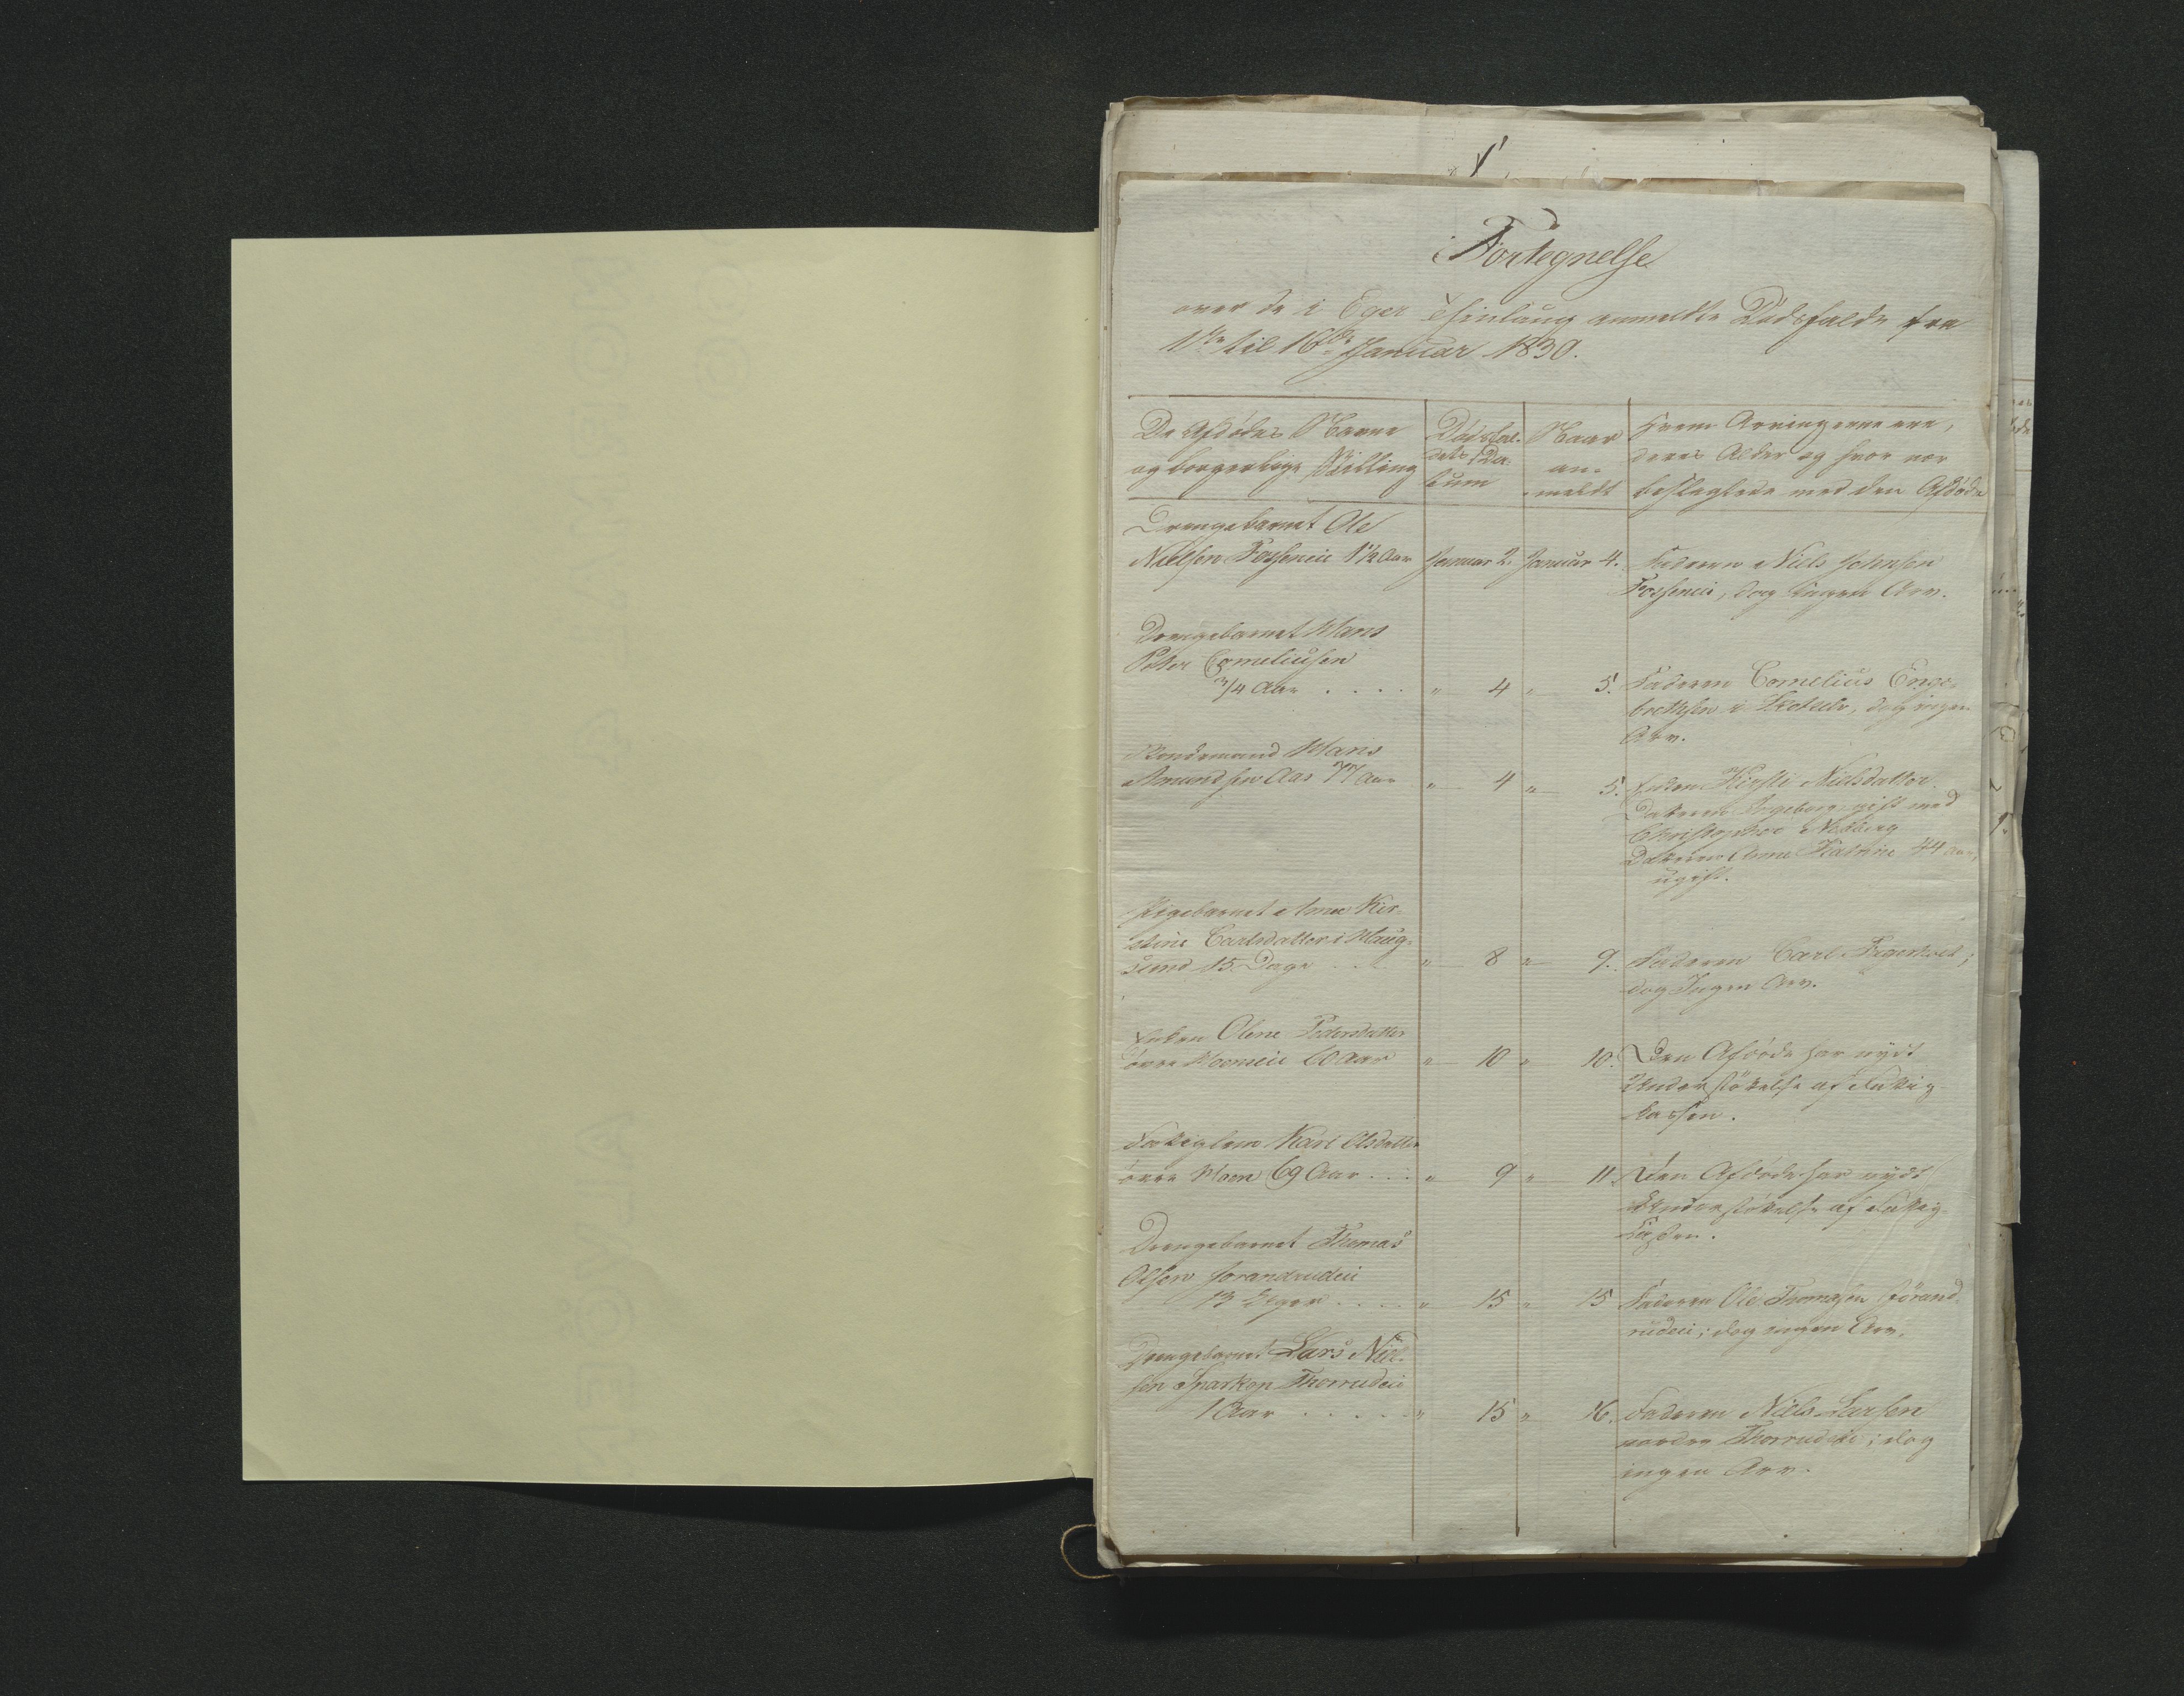 Fortegnelse
over de i Eger Thinlaug anmeldte Dødsfalde fra
1ste til 16de Januar 1830.
De Afdødes Navne
og borgerlige Stilling
Dødsfal-
dets Da-
tum
Naar
an-
meldt
Hvem Arvingerne ere,
deres Alder og hvor nær
beslægtede med den Afdøde
Drengebarnet Ole
Nielsen Fosseneie 1½ Aar Januar 2. Januar 4. Faderen Niels Johnsen
Fosseneie, dog ingen Arv.
Drengebarnet Hans
Peter Corneliusen
3/4 Aar . . . . " 4 " 5. Faderen Cornelius Enge-
brethsen i, dog ingen
Arv.
Bondemand Hans
Amundsen Aas 77 Aar " 4 " 5. Enken Kirsti Nielsdatter.
Datteren Ingeborg, gift med
Christopher Nedberg
Datteren Anne Katrine 44 Aar,
ugift.
Pigebarnet Anne Kir-
stine Carlsdatter i Haug-
sund 15 Dage . . . " 8 " 9. Faderen Carl;
dog Ingen Arv.
Enken Olene Pedersdatter
øvre Hoeneie 60 Aar " 10 " 10. Den Afdøde har nydt
Understøttelse af Fattig-
kassen.
Fattiglem Kari Olsdatter
øvre Hoen 69 Aar . . . " 9 " 11. Den Afdøde har nydt
Understøttelse af Fattig-
Kassen.
Drengebarnet Thomas
Olsen Horandrudeie
13 Uger . . . . " 15 " 15 Faderen Ole Thomesen Horand
rudeie; dog ingen Arv.
Drengebarnet Lars Niel-
sen Sparkop Thorrudeie
1 Aar . . . . . " 15 " 16. Faderen Niels Larsen
nordre Thorrudeie; dog
ingen Arv.